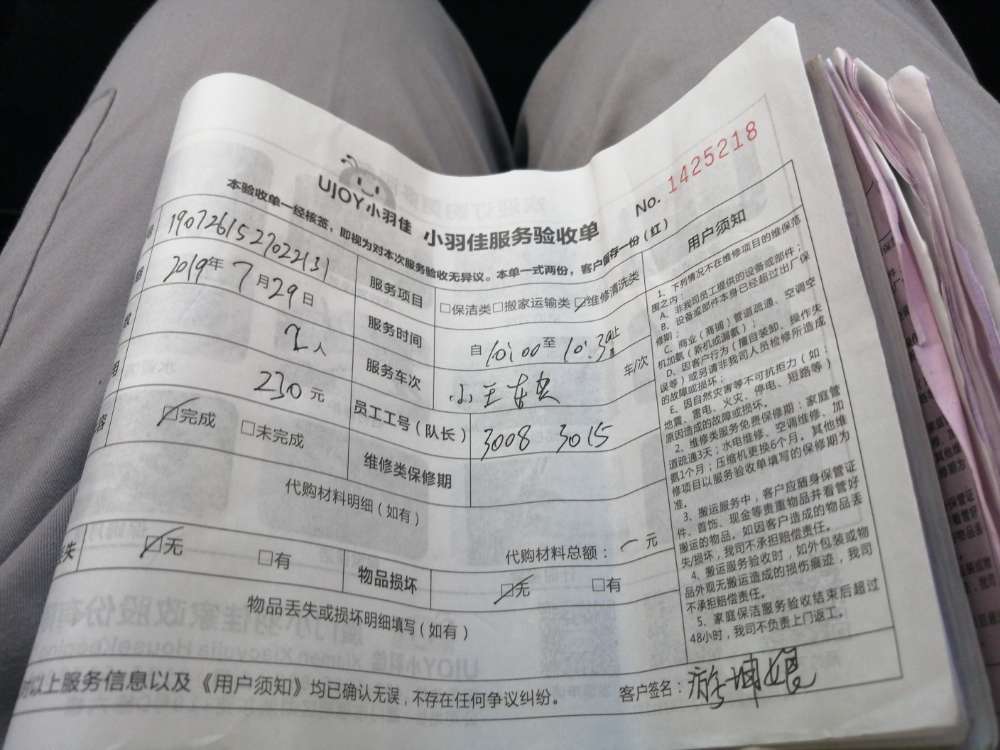 UJOY小羽佳
小羽佳服务验收单
No. 1425218
本验收单一经核签，即视为对本次服务验收无异议。本单一式两份，客户留存一份（红）
1907261527022131
服务项目
□保洁类□搬家运输类☑维修清洗类
2019年7月29日
服务时间
自10:00至10:3
2人
服务车次
车/次
230元
员工工号（队长）
3008 3015
☑完成
□未完成
维修类保修期
代购材料明细（如有）
代购材料总额：
元
失
☑无
□有
物品损坏
☑无
□有
物品丢失或损坏明细填写（如有）
以上服务信息以及《用户须知》均已确认无误，不存在任何争议纠纷。
客户签名：
用户须知
1、下列情况不在维修项目的维保范
围之内：
A、非我司员工提供的设备或部件；
B、设备或部件本身已经超过出厂保
修期；
C、商业（商铺）管道疏通、空调空
机加氨（新机或漏氨）；
D、因客户行为（擅自装卸、操作失
误等）或另请非我司人员检修所造成
的故障或损坏；
E、因自然灾害等不可抗拒力（如：
地震、雷电、火灾、停电、短路等）
原因造成的故障或损坏。
2、维修类服务免费保修期：家庭管
道疏通3天；水电维修、空调维修、加
氨1个月；压缩机更换6个月。其他维
修项目以服务验收单填写的保修期为
准。
3、搬运服务中，客户应随身保管证
件、首饰、现金等贵重物品并看管好
搬运的物品。如因客户造成的物品丢
失/损坏，我司不承担赔偿责任。
4、搬运服务验收时，如外包装或物
品外观无搬运造成的损伤痕迹，我司
不承担赔偿责任。
5、家庭保洁服务验收结束后超过
48小时，我司不负责上门返工。